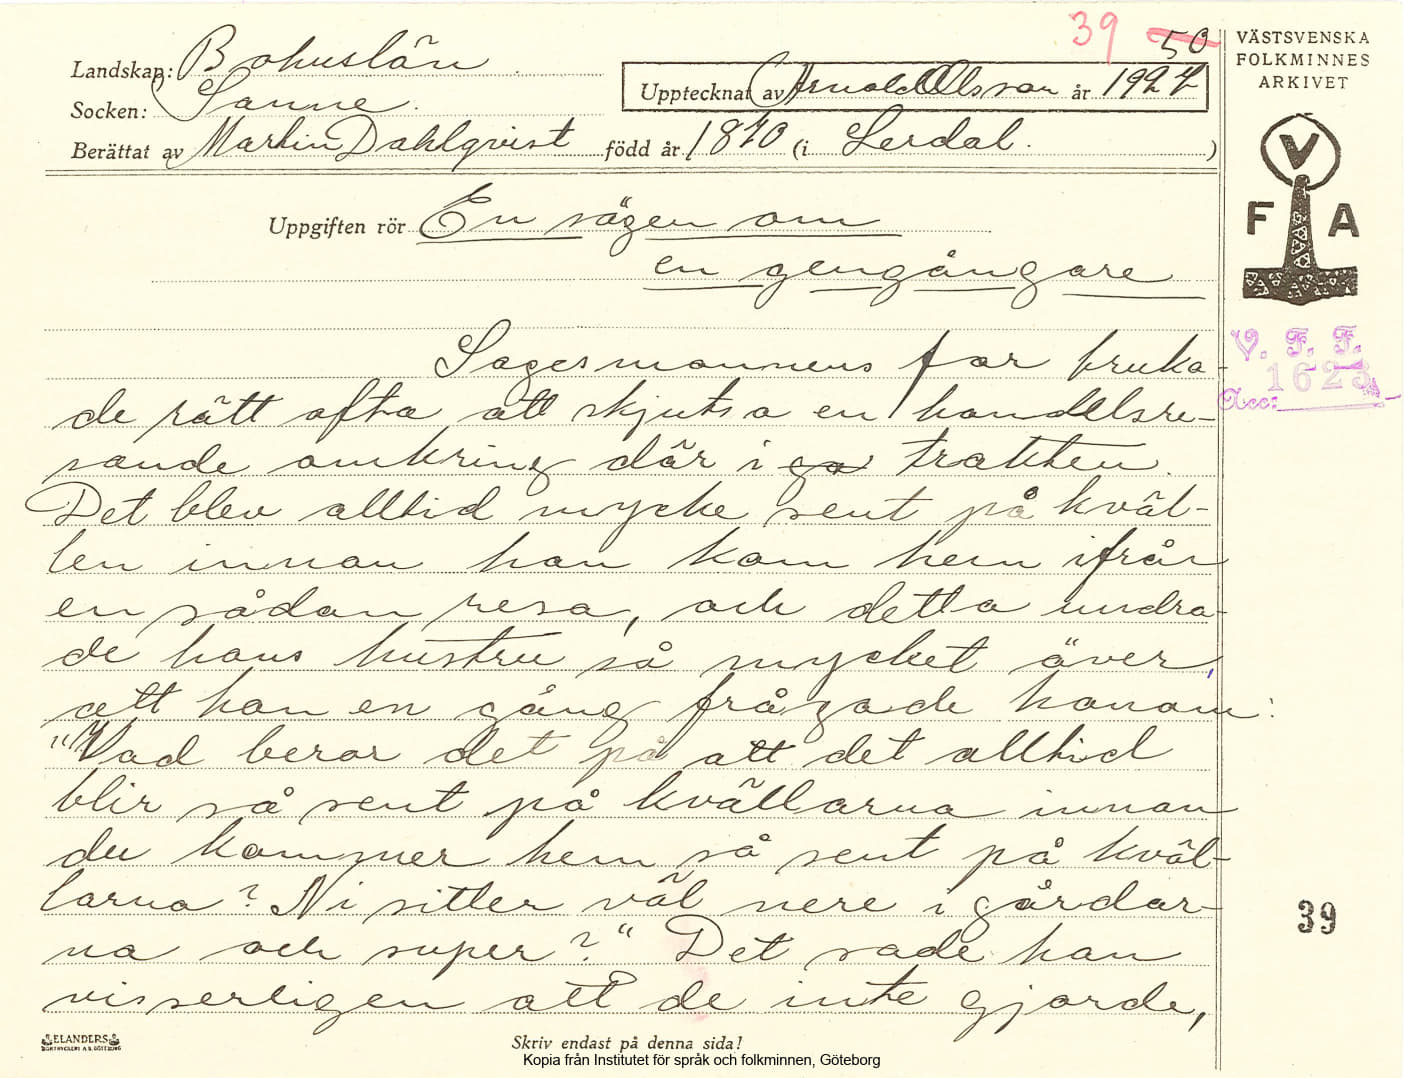 39 50
VÄSTSVENSKA
FOLKMINNES
ARKIVET
Landskap: Bohuslän
Upptecknat av Arnold Olsson år 1927
Socken: Sanne.
Berättat av Martin Dahlqvist född år 1870 (i Lerdal.)
V
F A
Uppgiften rör En sägen om
en gengångare
V. F. F.
1623
Acc:
Sagesmannens far bruka-
de rätt ofta att skjutsa en handelsre-
sande omkring där i ga trakten.
Det blev alltid mycke sent på kväl-
len innan han kom hem ifrån
en sådan resa, och detta undra-
de hans hustru så mycket över,
att hon en gång frågade honom:
"Vad beror det på att det alltid
blir så sent på kvällarna innan
du kommer hem så sent på kväl-
larna? Ni sitter väl nere i gårdar-
na och super?" Det sade han
visserligen att de inte gjorde,
39
ELANDERS
BOKTRYCKERI A.B. GÖTEBORG
Skriv endast på denna sida!
Kopia från Institutet för språk och folkminnen, Göteborg